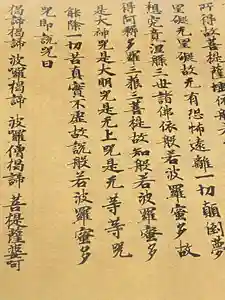 所得故菩提薩埵依般
罣礙无罣礙故无有恐怖遠離一切顛倒夢
想究竟涅槃三世諸佛依般若波羅蜜多故
得阿耨多羅三藐三菩提故知般若波羅蜜多
是大神咒是大明咒是无上咒是无等等咒
能除一切苦真實不虛故說般若波羅蜜多
咒即說咒曰
揭諦揭諦 波羅揭諦 波羅僧揭諦 菩提薩婆訶